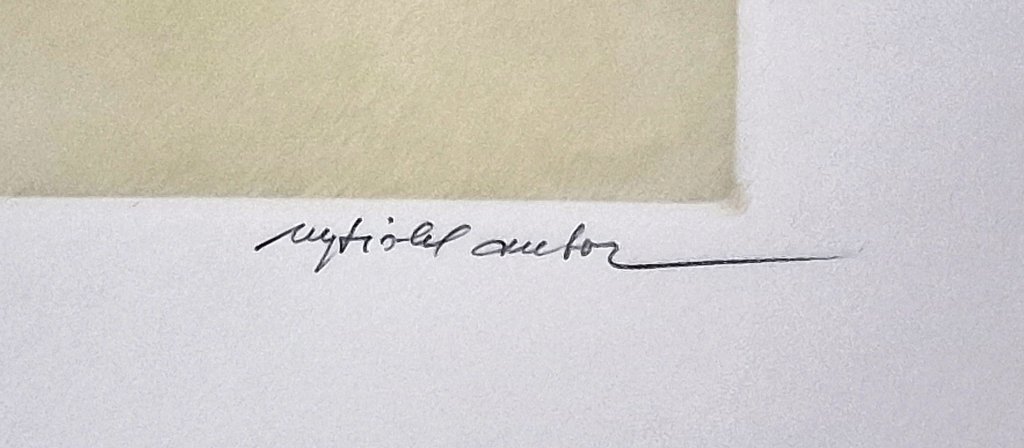 vytiskl autor